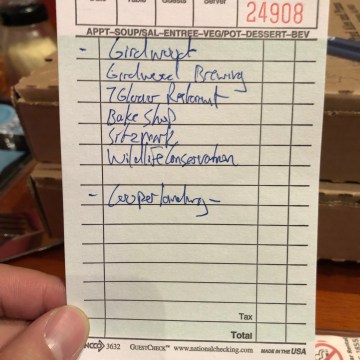 Table Guests Server
24908
APPT-SOUP/SAL-ENTREE-VEG/POT-DESSERT-BEV
- Girdwood
Girdwood Brewing
7 Glacier Restaurant
Bake Shop
Sitzmark
Wildlife Conservation
- Cooper Landing -
Tax
Total
3632 GUESTCHECK™ www.nationalchecking.com MADE IN THE USA